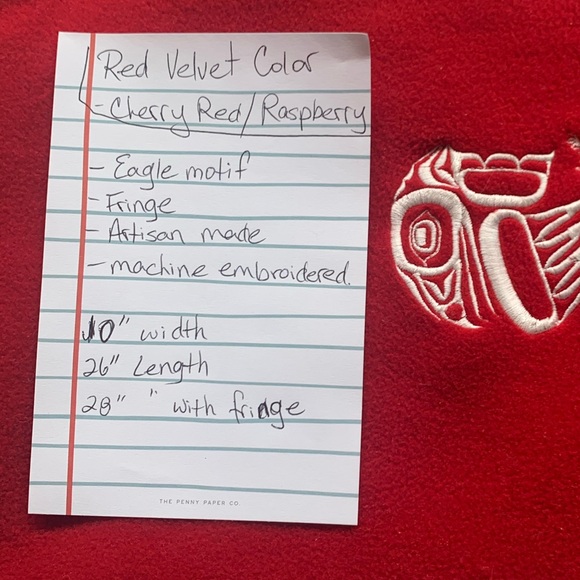 Red Velvet Color
- Cherry Red/Raspberry
- Eagle motif
- Fringe
- Artisan made
- machine embroidered.
10" width
26" Length
28" " with fringe
THE PENNY PAPER CO.